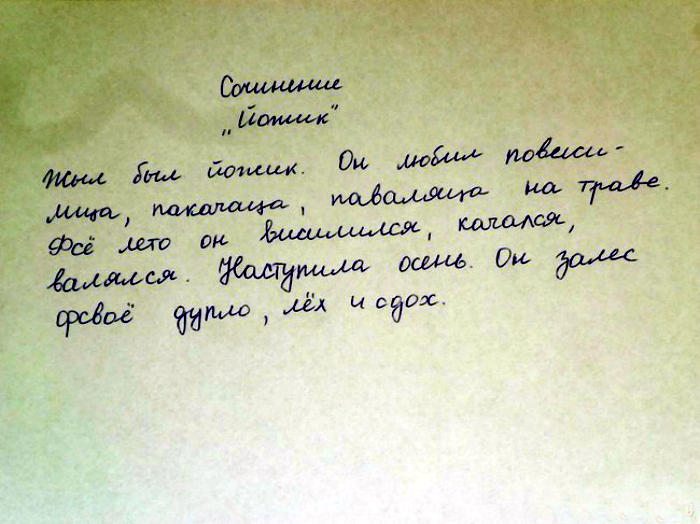 Сочинение
„Йожик"
Жыл был йожик. Он любил повесси-
лица, пакачаца, паваляца на траве.
Фсё лето он висилился, качался,
валялся. Наступила осень. Он залес
фсвоё дупло, лёх и сдох.